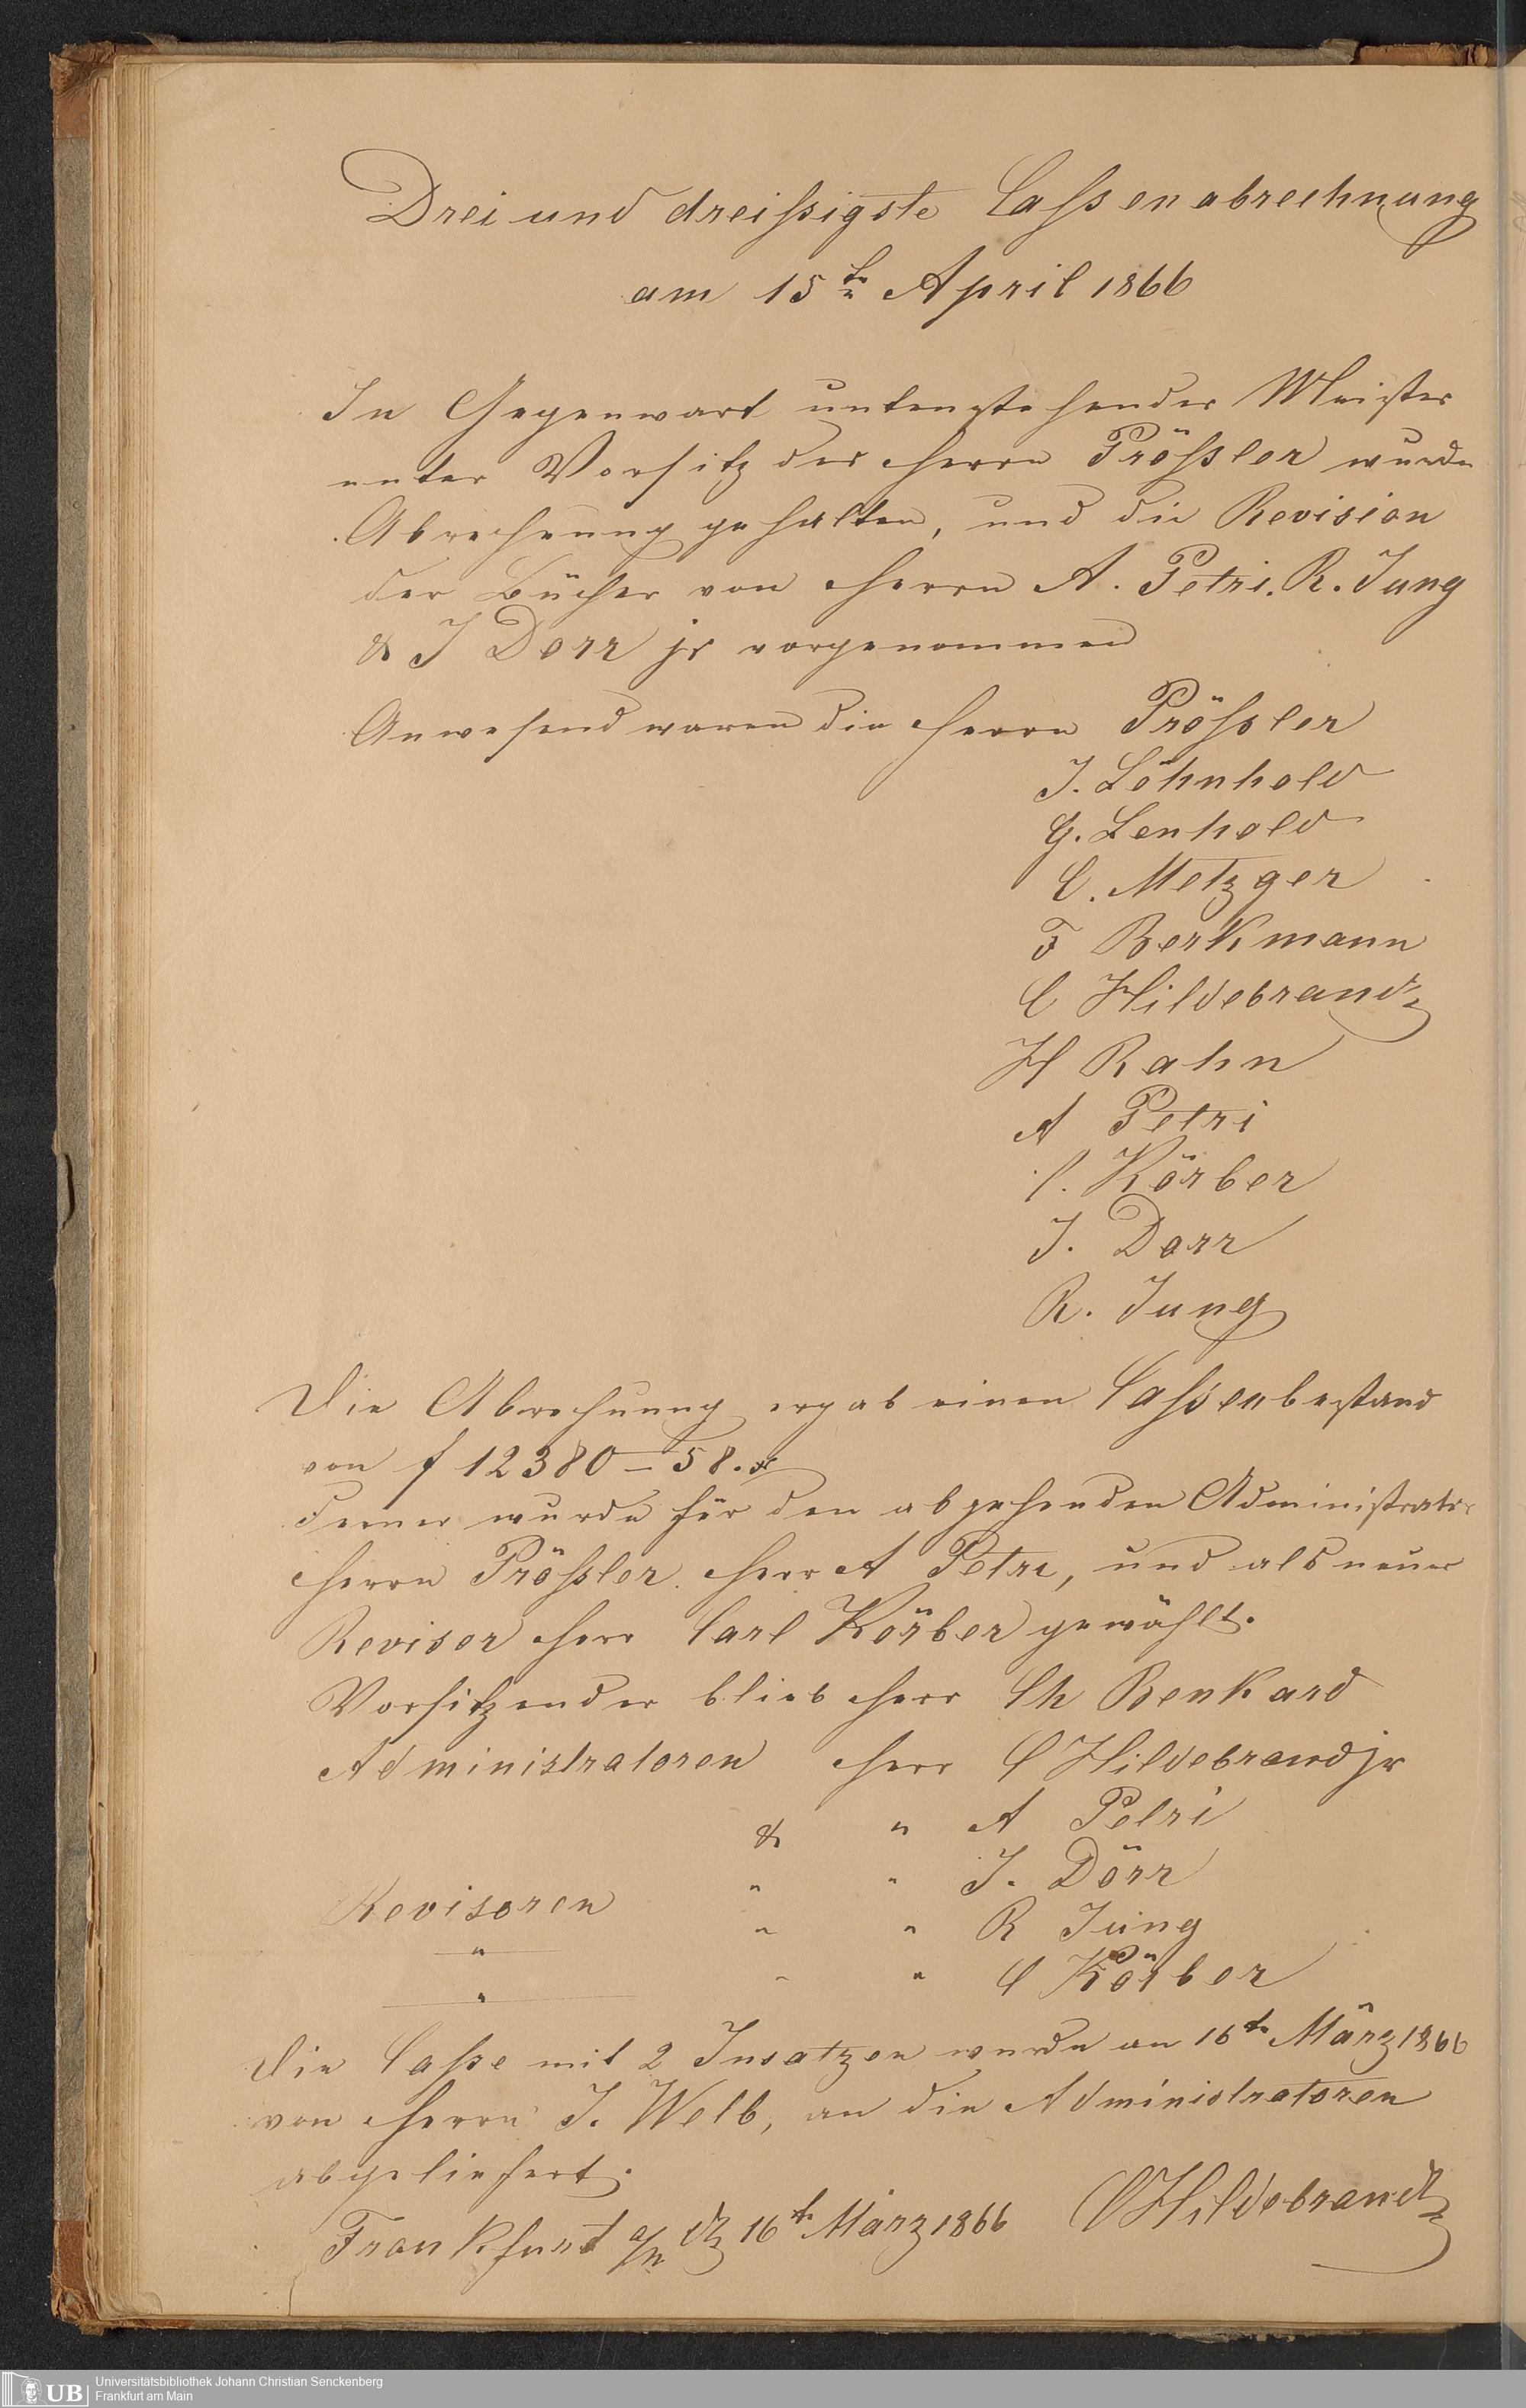 Drei und dreißigste Cassenabrechnung
am 15tn April 1866
In Gegenwart untenstehender Meister
unter Vorsitz des Herrn Prößler wurde
Abrechnung gehalten, und die Revision
der Bücher von Herrn A. Petri. R. Jung
& J Dorr jr vorgenommen
Anwesend waren die Herrn Prößler
J. Löhnhold
G. Lenhold
C. Metzger
F Berkmann
C Hildebrand
H Rahn
A Petri
C. Körber
J. Dorr
R. Jung
Die Abrechnung ergab einen Cassenbestand
von f 12380–58. x
Ferner wurde für den abgehenden Administrator
Herrn Prößler. Herr A Petri, und als neuer
Revisor Herr Carl Körber gewählt.
Vorsitzender blieb Herr Ch Benkard
Administratoren Herr C Hildebrand jr
& " A Petri
Revisoren " " J. Dörr
" " " R Jung
" " " C Körber
Die Casse mit 2 Insatzen wurde an 16tn März 1866
von Herrn J. Welb, an die Administratoren
abgeliefert.
Frankfurt a/m 16tn März 1866 C Hildebrand
UB Universitätsbibliothek Johann Christian Senckenberg
Frankfurt am Main